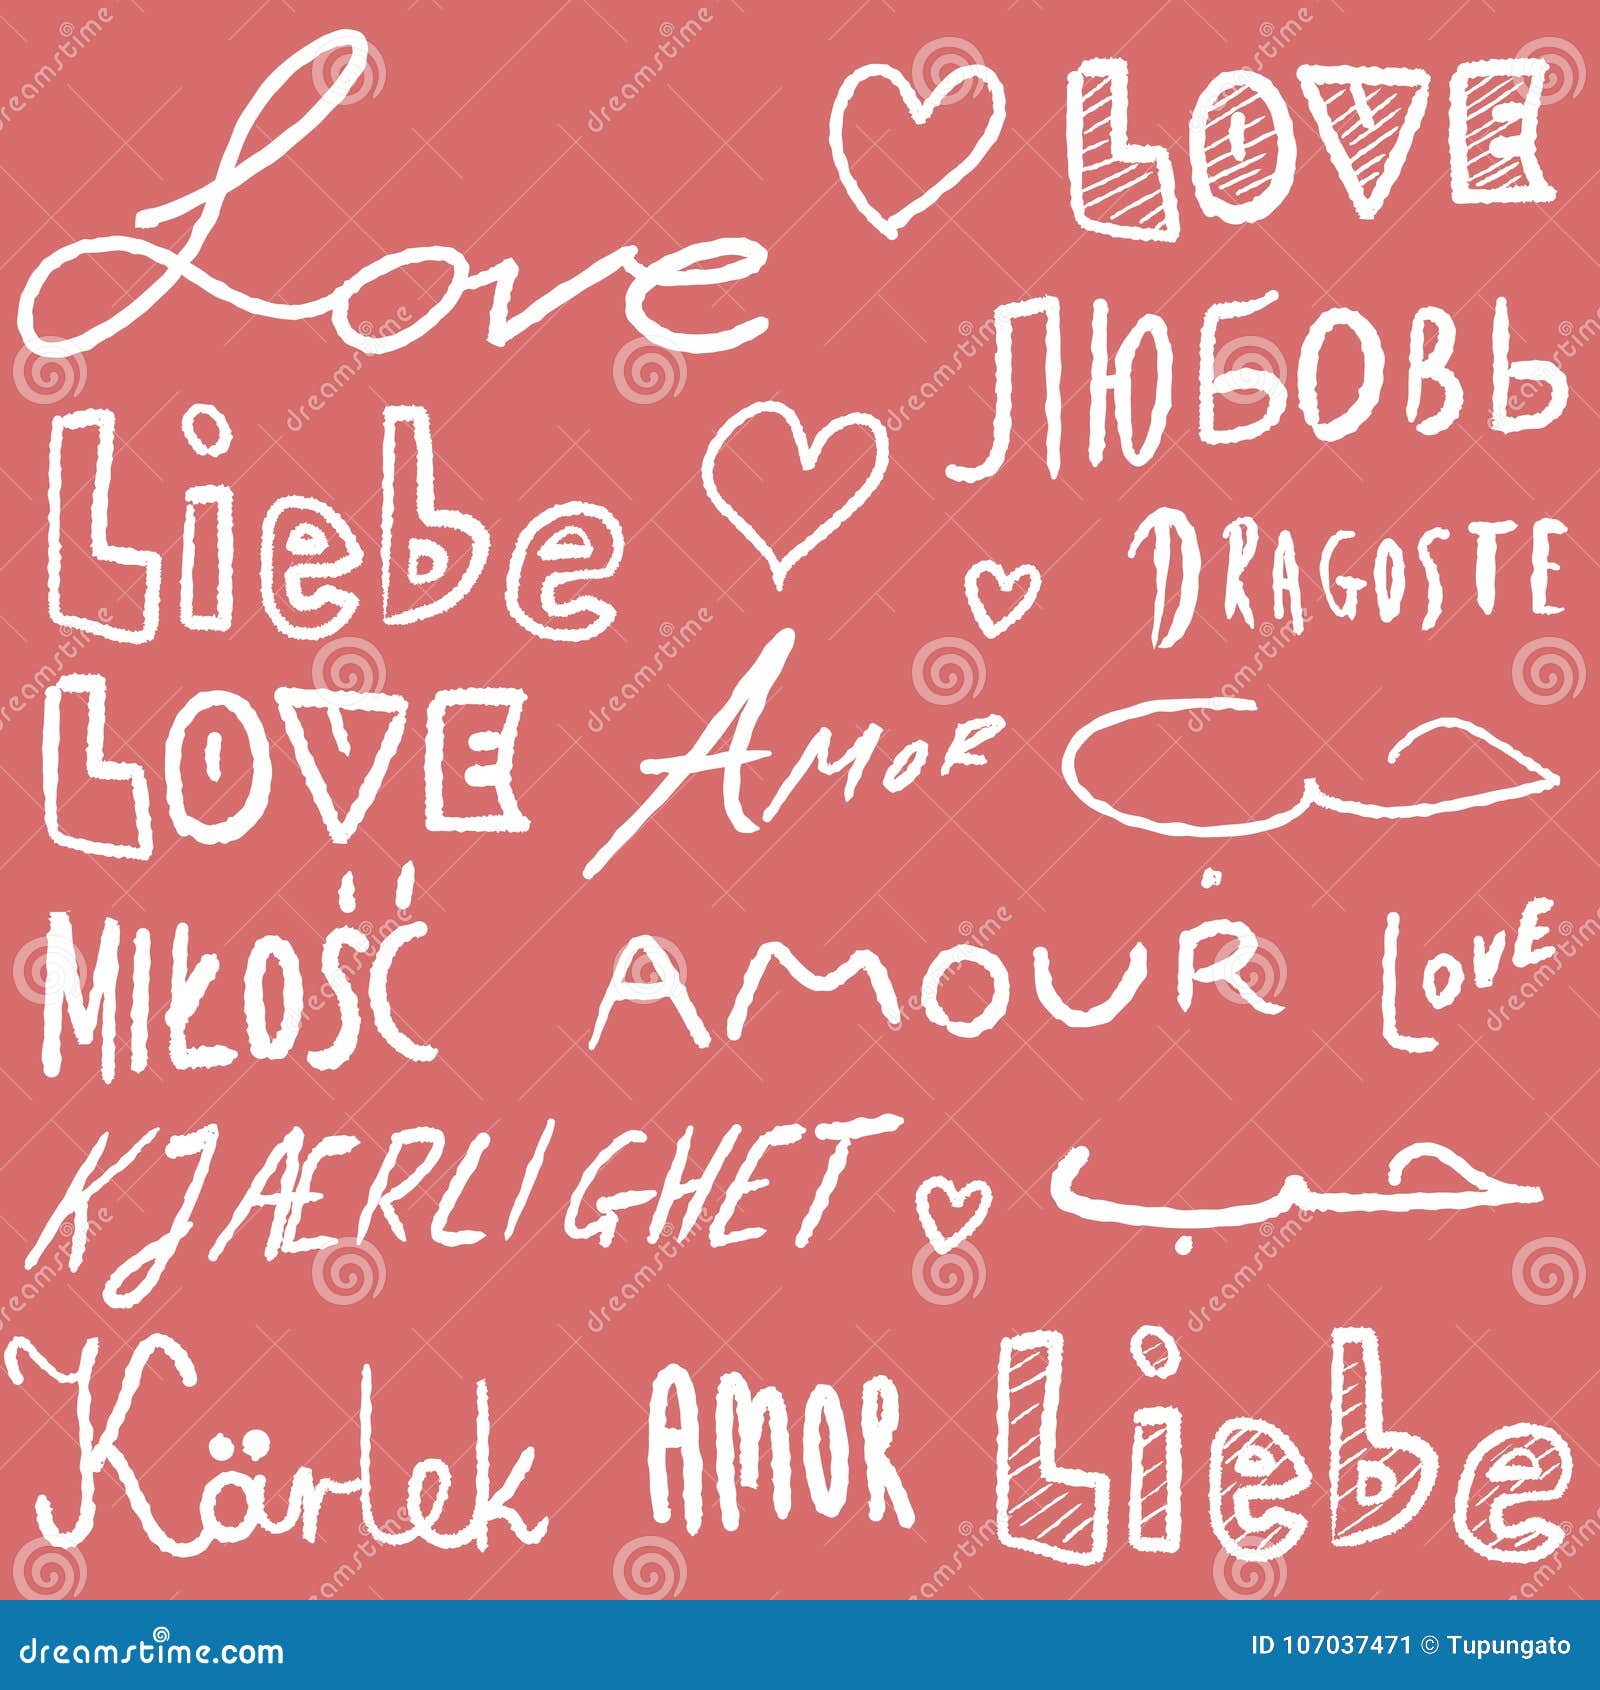 Love
LOVE
ЛЮБОВЬ
Liebe
DRAGOSTE
LOVE
AMOR
حب
MIŁOŚĆ
AMOUR
LOVE
KJÆRLIGHET
حب
Kärlek
AMOR
Liebe
dreamstime.com
ID 107037471 © Tupungato